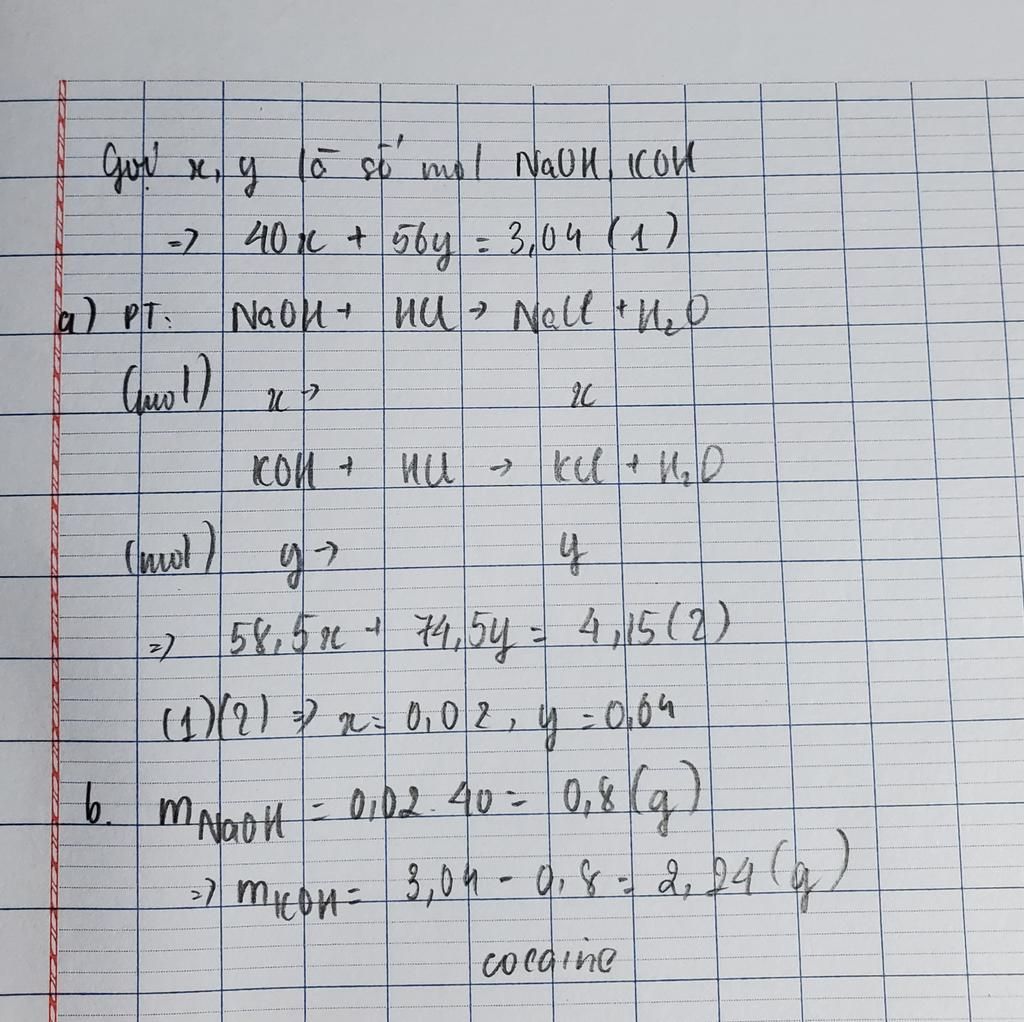 Gọi x, y là số mol NaOH, KOH
=> 40x + 56y = 3,04 (1)
a) PT: NaOH + HCl → NaCl + H₂O
(mol) x → x
KOH + HCl → KCl + H₂O
(mol) y → y
=> 58,5x + 74,5y = 4,15 (2)
(1)(2) => x = 0,02, y = 0,04
b. mNaOH = 0,02 . 40 = 0,8 (g)
=> mKOH = 3,04 - 0,8 = 2,24 (g)
cocaine